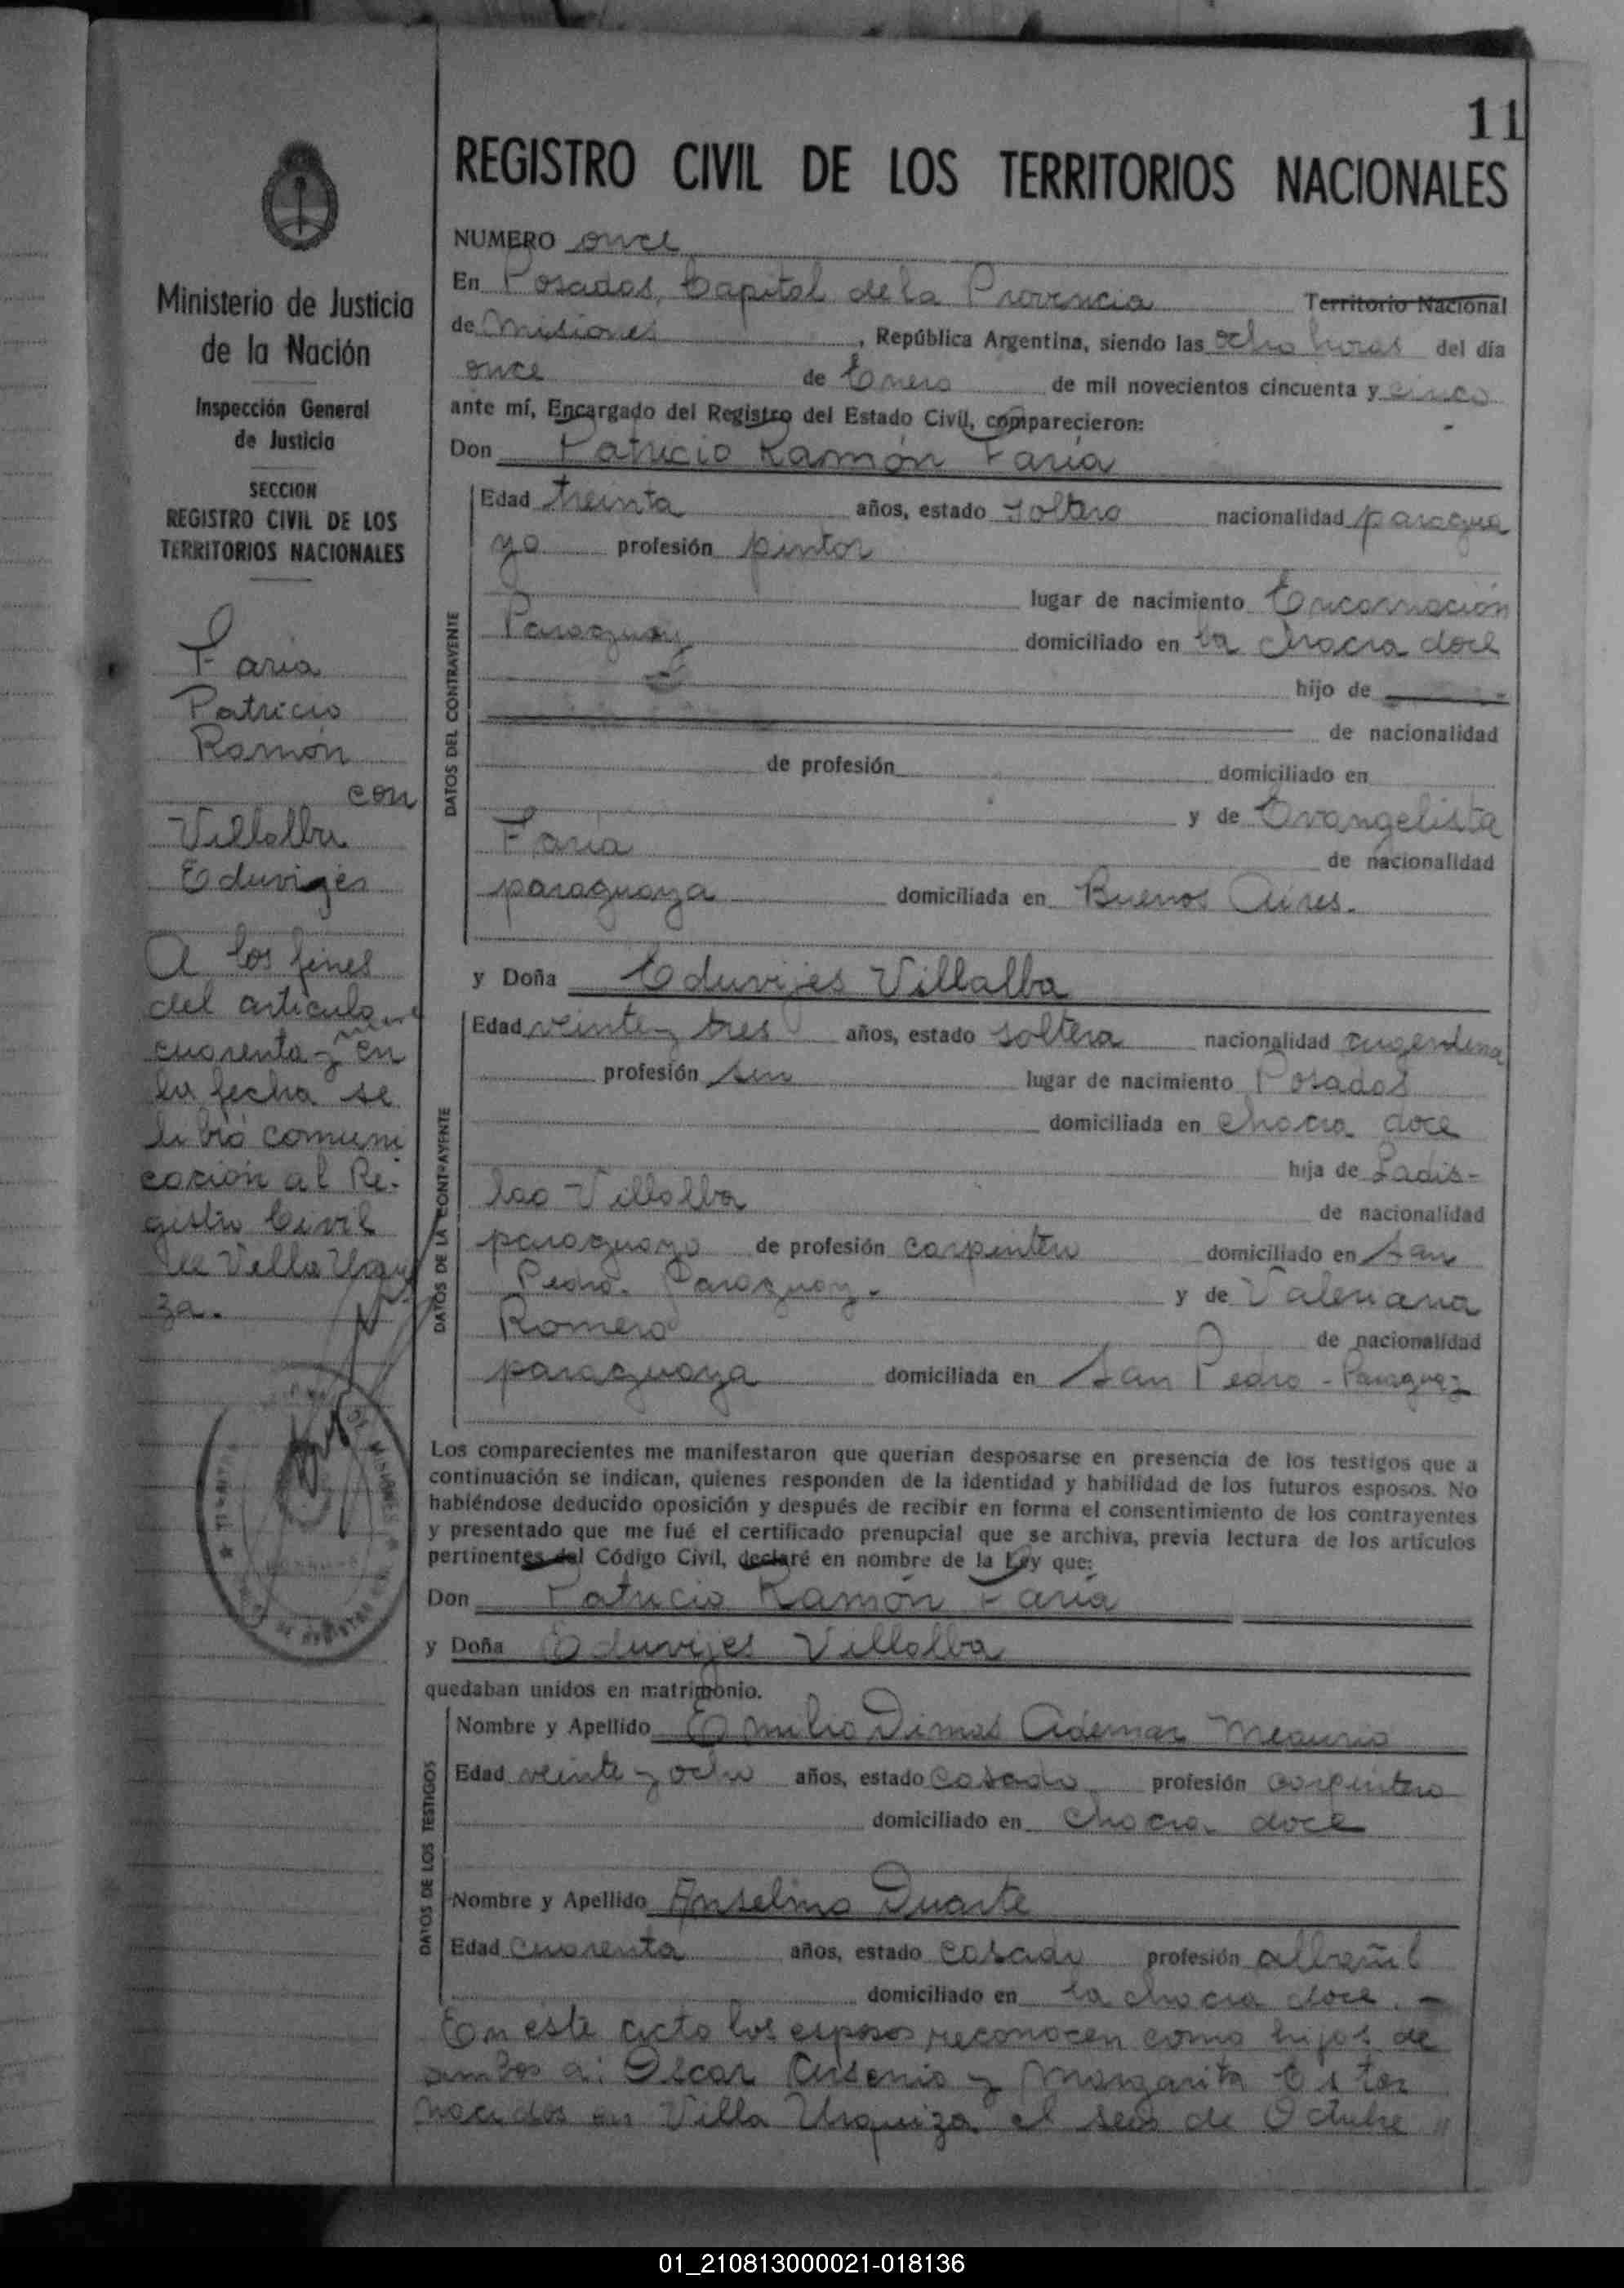 11
REGISTRO CIVIL DE LOS TERRITORIOS NACIONALES
NUMERO once
En Posadas, Capital de la Provincia Territorio Nacional
de Misiones, República Argentina, siendo las ocho horas del día
once de Enero de mil novecientos cincuenta y cinco
ante mí, Encargado del Registro del Estado Civil, comparecieron:
Don Patricio Ramón Faria
Edad treinta años, estado soltero nacionalidad paragua
yo profesión pintor
lugar de nacimiento Encarnación
Paraguay domiciliado en la chacra doce
hijo de
de nacionalidad
de profesión domiciliado en
y de Evangelista
Faria de nacionalidad
paraguaya domiciliada en Buenos Aires.
y Doña Eduvijes Villalba
Edad veinte y tres años, estado soltera nacionalidad argentina
profesión sin lugar de nacimiento Posadas
domiciliada en chacra doce
hija de Ladis-
lao Villalba de nacionalidad
paraguayo de profesión carpintero domiciliado en San
Pedro. Paraguay. y de Valeriana
Romero de nacionalidad
paraguaya domiciliada en San Pedro - Paraguay
DATOS DEL CONTRAYENTE
DATOS DE LA CONTRAYENTE
Los comparecientes me manifestaron que querían desposarse en presencia de los testigos que a
continuación se indican, quienes responden de la identidad y habilidad de los futuros esposos. No
habiéndose deducido oposición y después de recibir en forma el consentimiento de los contrayentes
y presentado que me fué el certificado prenupcial que se archiva, previa lectura de los artículos
pertinentes del Código Civil, declaré en nombre de la Ley que:
Don Patricio Ramón Faria
y Doña Eduvijes Villalba
quedaban unidos en matrimonio.
Nombre y Apellido Emilio Dimas Ademar Meaurio
Edad veinte y ocho años, estado casado profesión carpintero
domiciliado en chacra doce
Nombre y Apellido Anselmo Duarte
Edad cuarenta años, estado casado profesión albañil
domiciliado en la chacra doce. -
DATOS DE LOS TESTIGOS
En este acto los esposos reconocen como hijos de
ambos a: Oscar Arsenio y Margarita Ester
nacidos en Villa Urquiza el seis de Octubre
Ministerio de Justicia
de la Nación
Inspección General
de Justicia
SECCION
REGISTRO CIVIL DE LOS
TERRITORIOS NACIONALES
Faria
Patricio
Ramón
con
Villalba
Eduviges
A los fines
del articulo
cuarenta y nueve en
la fecha se
libró comuni
cación al Re-
gistro Civil
de Villa Urqui
za.
01_210813000021-018136